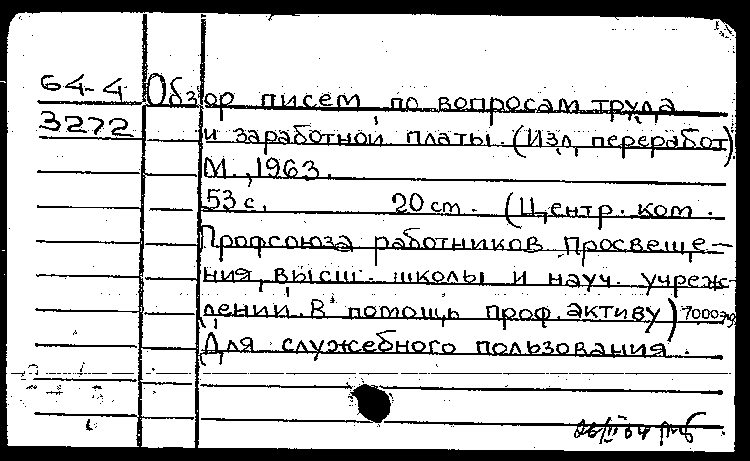 64-4 Обзор писем по вопросам труда
3272 и заработной платы. (Изд. переработ)
М., 1963.
53 с. 20 см. (Центр. ком.
Профсоюза работников просвеще-
ния, высш. школы и науч. учреж-
дений. В помощь проф. активу) 7000 э
Для служебного пользования.
26/II 64